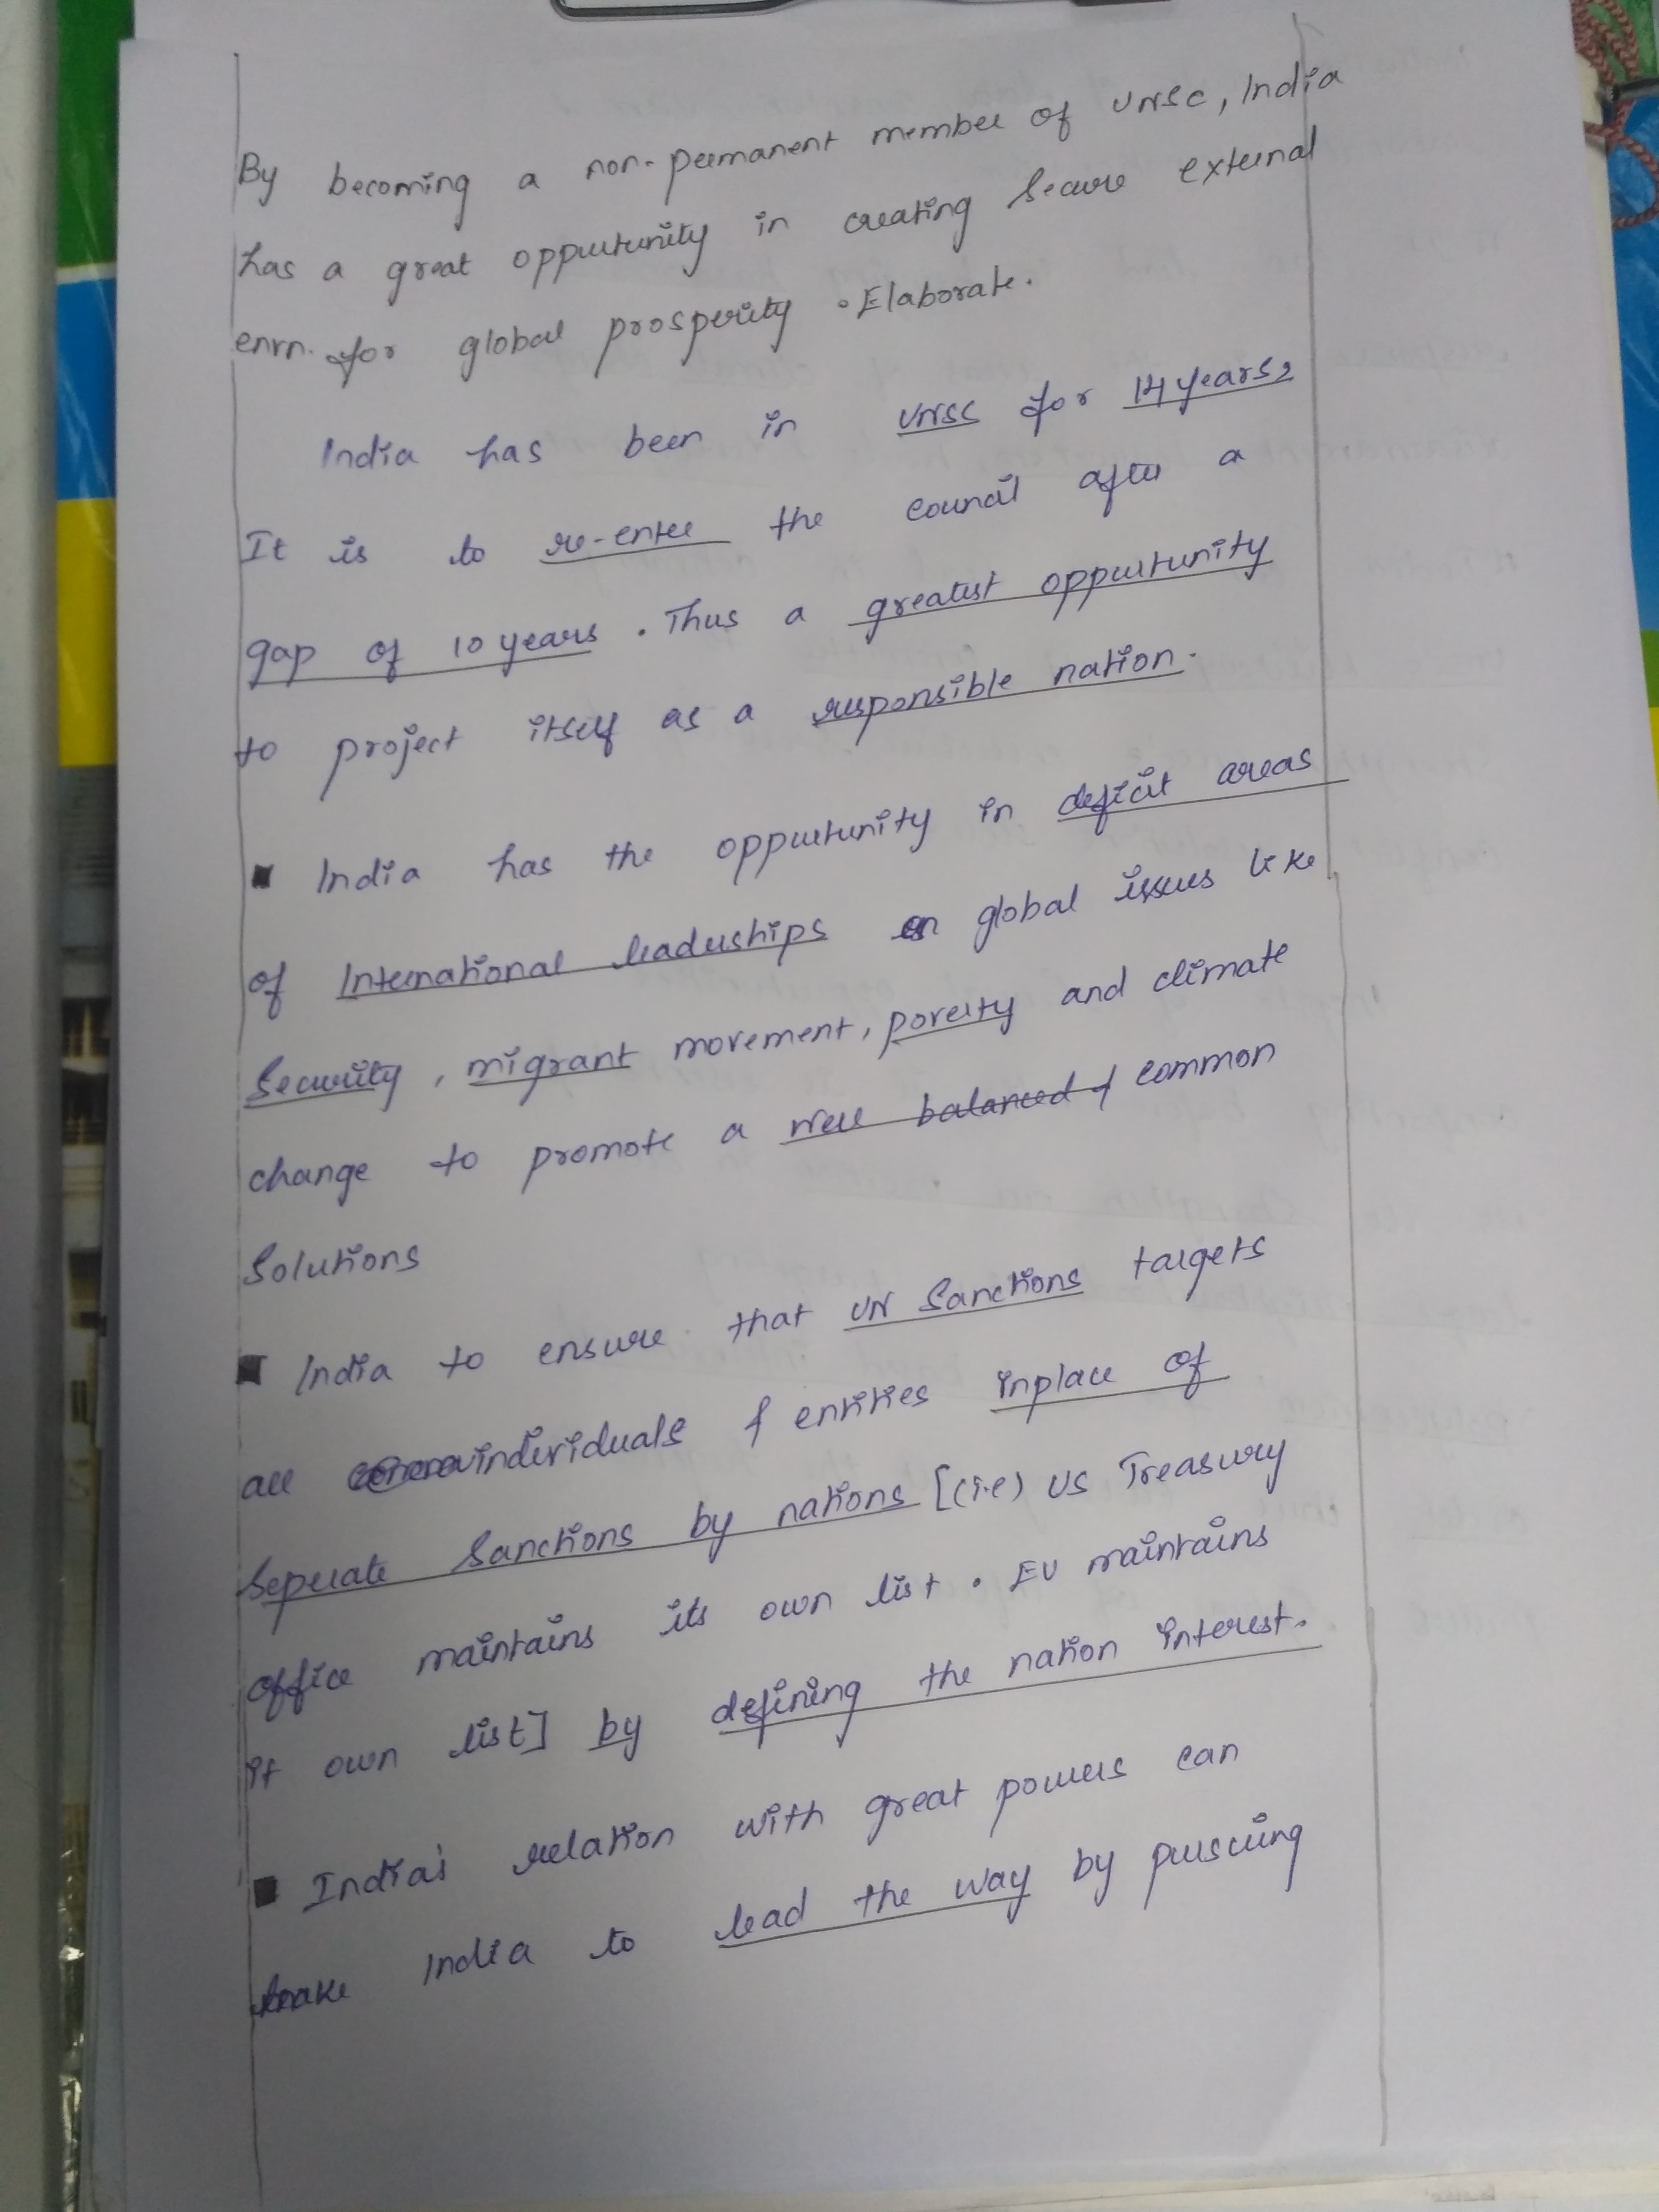 By becoming a non-permanent member of UNSC, India
has a great opportunity in creating secure external
envn. for global prosperity. Elaborate.
India has been in UNSC for 14 years,
It is to re-enter the council after a
gap of 10 years. Thus a greatest opportunity
to project itself as a responsible nation.
India has the opportunity in deficit areas
of International leaderships on global issues like
Security, migrant movement, poverty and climate
change to promote a well balanced & common
Solutions
India to ensure that UN Sanctions targets
all individuals & entities inplace of
Seperate Sanctions by nations [(i.e) US Treasury
office maintains its own list. EU maintains
it own list] by defining the nation interest.
India's relation with great powers can
make India to lead the way by pursuing